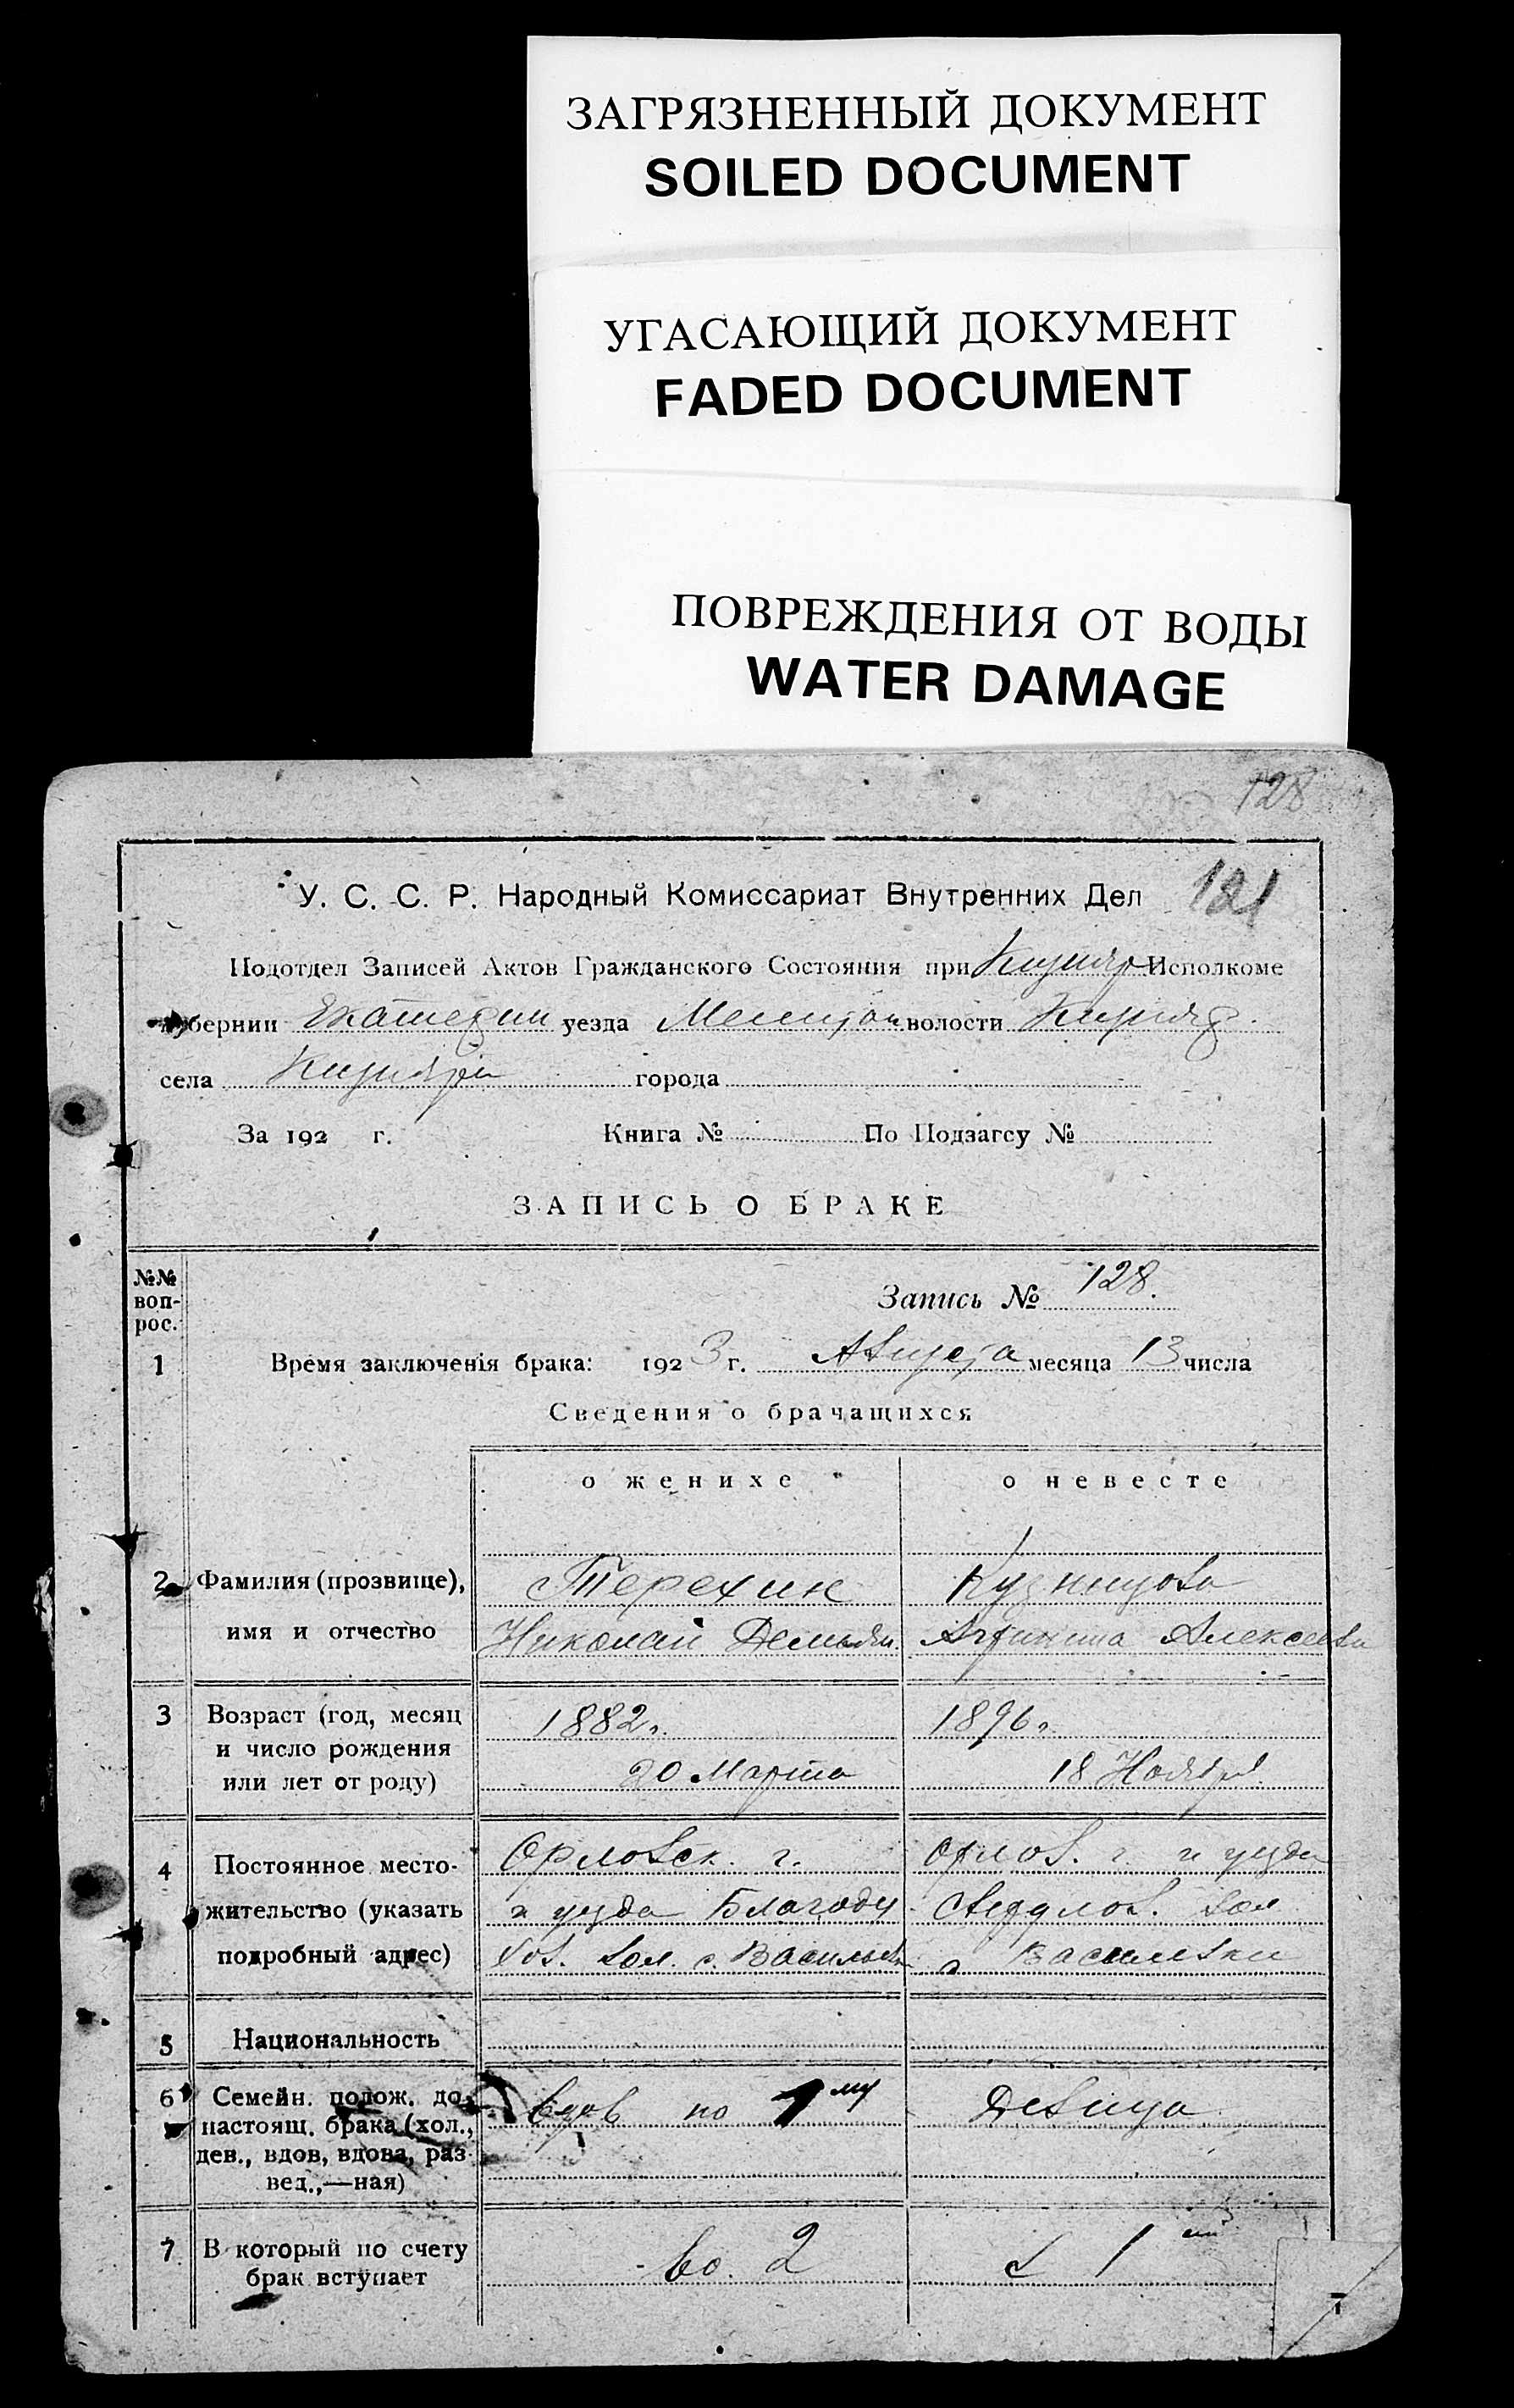 ЗАГРЯЗНЕННЫЙ ДОКУМЕНТ
SOILED DOCUMENT
УГАСАЮЩИЙ ДОКУМЕНТ
FADED DOCUMENT
ПОВРЕЖДЕНИЯ ОТ ВОДЫ
WATER DAMAGE
128
121
У. С. С. Р. Народный Комиссариат Внутренних Дел
Подотдел Записей Актов Гражданского Состояния при Исполкоме
губернии Екатерин уезда волости
села города
За 192 г. Книга № По Подзагсу №
ЗАПИСЬ О БРАКЕ
№№ воп-рос.
Запись № 128.
1 Время заключенія брака: 1923 г. Августа месяца 13 числа
Сведения о брачащихся
о женихе о невесте
2 Фамилия (прозвище), Терехин Кузницова
имя и отчество Николай Демьян. Алексеева
3 Возраст (год, месяц 1882 г. 1896 г.
и число рождения
или лет от роду) 20 Марта 18 Ноября
4 Постоянное место- Орловск. г. Орлов. г. и уезда
жительство (указать и уезда Благоду Свердлов. вол
подробный адрес) вол. с. Васильевк с Васильевки
5 Национальность
6 Семейн. полож. до вдов по 1му Девица
настоящ. брака (хол.,
дев., вдов, вдова, раз-
вед.,—ная)
7 В который по счету во 2 в 1ый
брак вступает